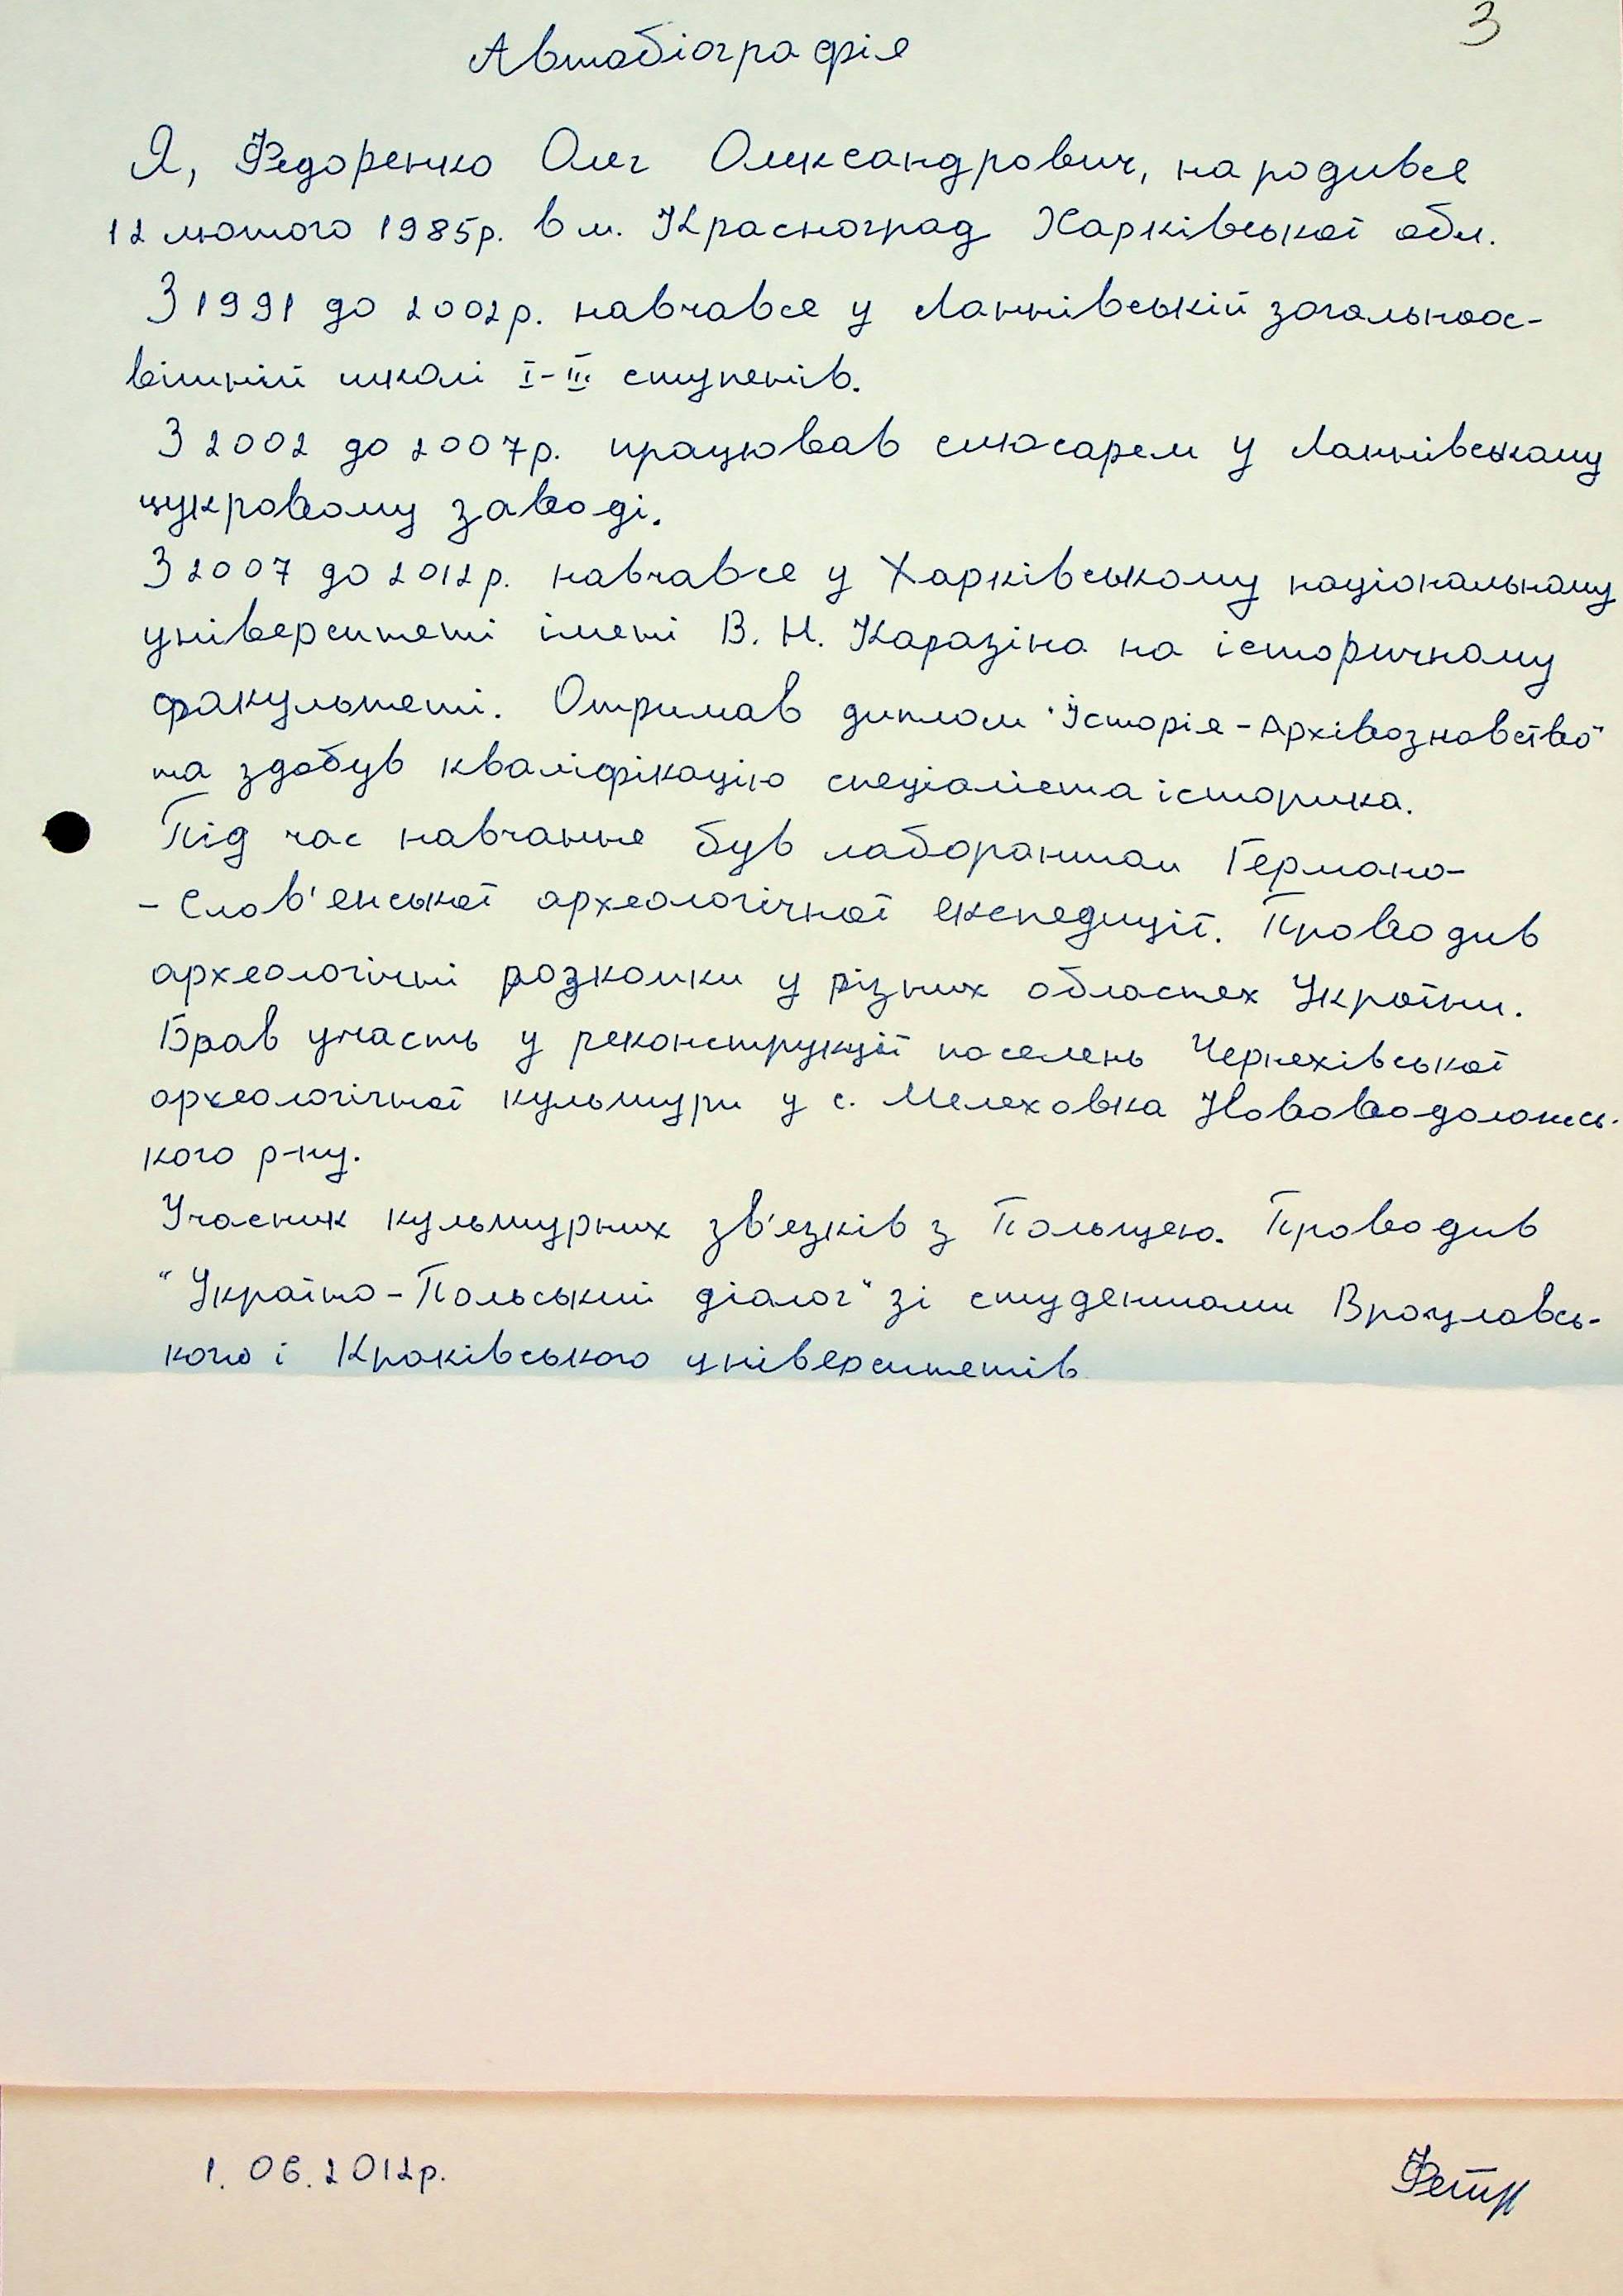 3
Автобіографія
Я, Федоренко Олег Олександрович, народився
12 лютого 1985р. в м. Красноград Харківської обл.
З 1991 до 2002р. навчався у Ланнівській загальноос-
вітній школі І-ІІІ ступенів.
З 2002 до 2007р. працював слюсарем у Ланнівському
цукровому заводі.
З 2007 до 2012р. навчався у Харківському національному
університеті імені В. Н. Каразіна на історичному
факультеті. Отримав диплом "Історія-Архівознавство"
та здобув кваліфікацію спеціаліста історика.
Під час навчання був лаборантом Германо-
- Слов'янської археологічної експедиції. Проводив
археологічні розкопки у різних областях України.
Брав участь у реконструкції поселень Черняхівської
археологічної культури у с. Мелеховка Нововодолажсь-
кого р-ну.
Учасник культурних зв'язків з Польщею. Проводив
"Україно-Польський діалог" зі студентами Вроцлавсь-
кого і Краківського університетів
1. 06. 2012р.